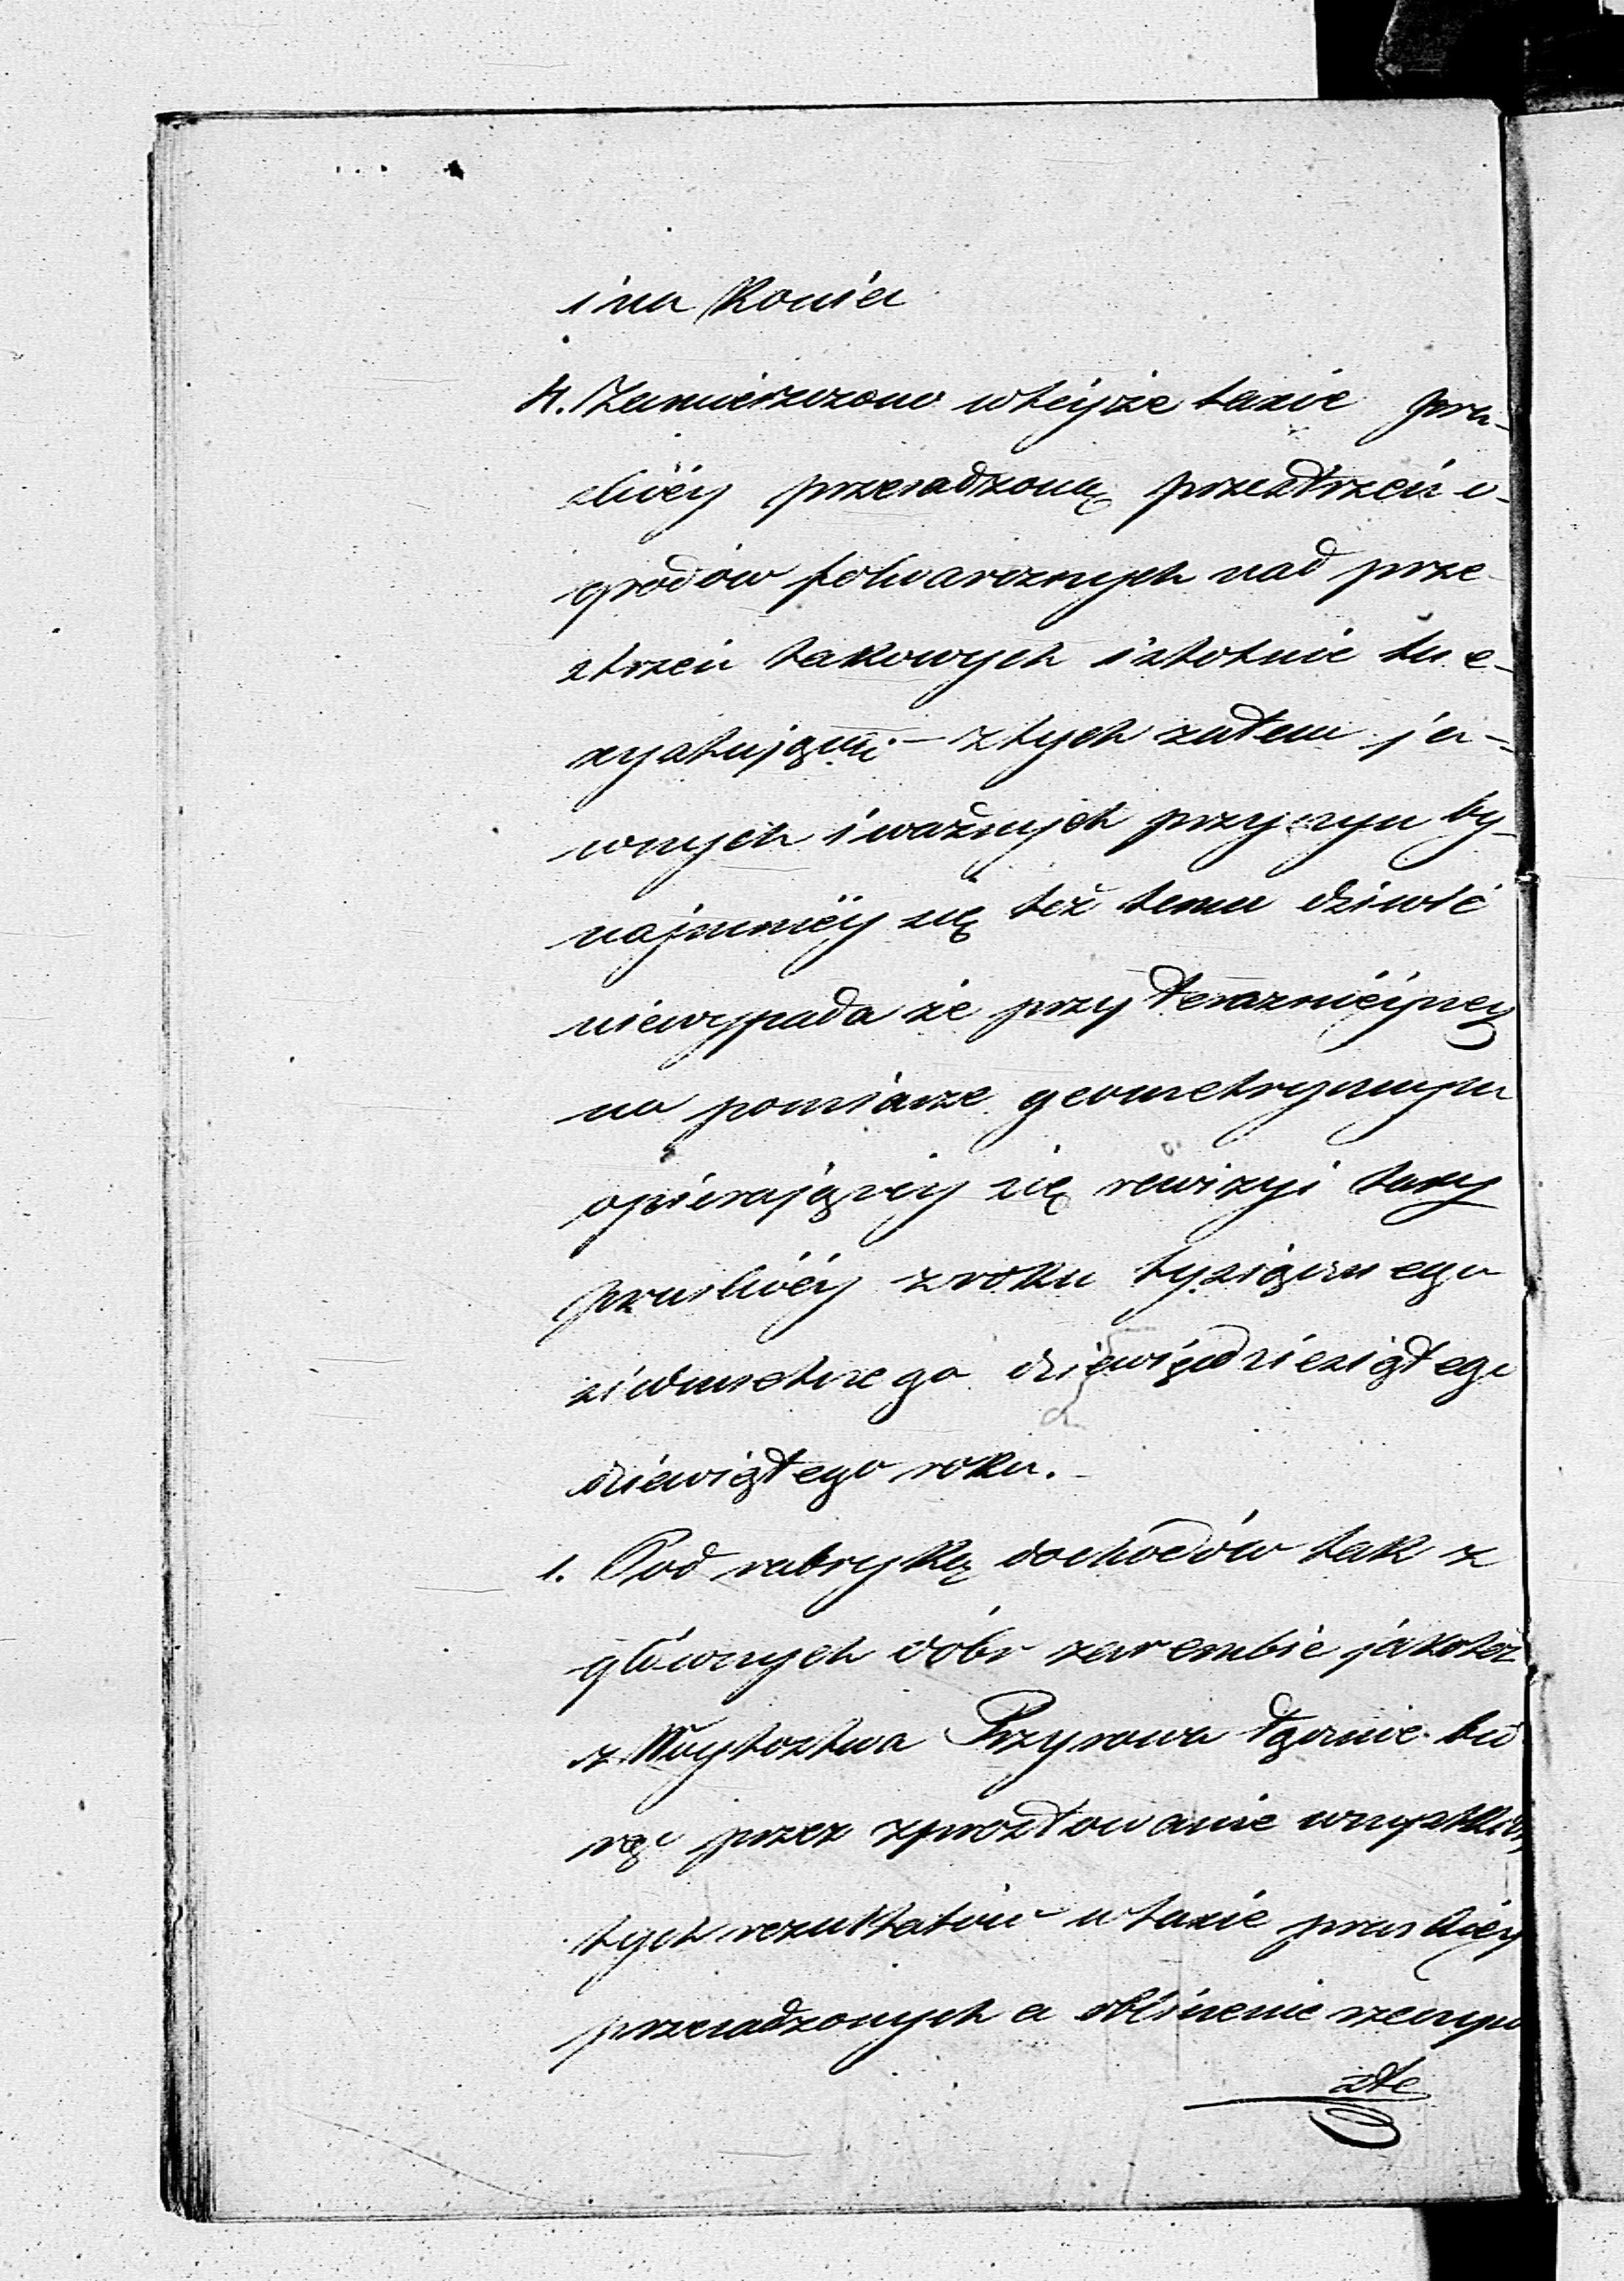 i na Konéu
4. Zamieszczono w téyże taxie pru-
skiéy przesadzoną przestrzeń o-
grodów folwarcznych nad prze-
strzeń takowych istotnie tu e-
xystującą – z tych zatem ja-
wnych i ważnych przyczyn by-
najmniéy się też temu dziwić
niewypada że przy teraznieyszey
na pomiarze geometrycznym
opierającéy się rewizyi taxy
pruskiéy z roku tysiącznego
siedmsetnego dziewięćdziesiątego
dziewiątego roku.
1. Pod rubryką dochodów tak z
głównych dóbr zarembie jakoteż
z Wóytostwa Przyrowa łącznie bio
rąc przez sprostowanie wszystkich
tych rezultatów w taxie pruskiéy
przesadzonych a obliczenie rzeczywi
ste